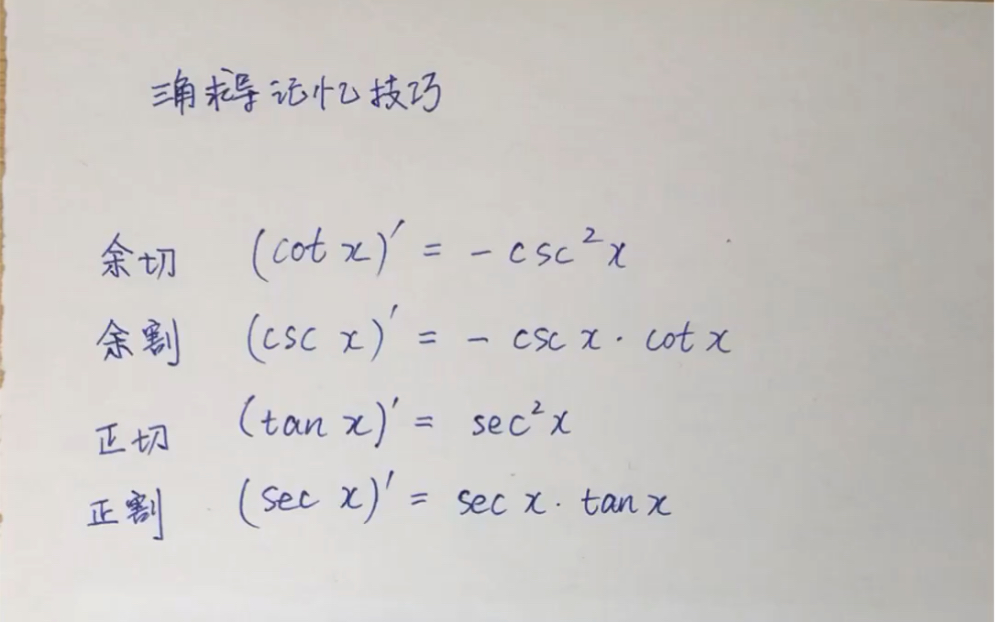 三角求导记忆技巧
余切 (cot x)′ = - csc²x
余割 (csc x)′ = - csc x · cot x
正切 (tan x)′ = sec²x
正割 (sec x)′ = sec x · tan x